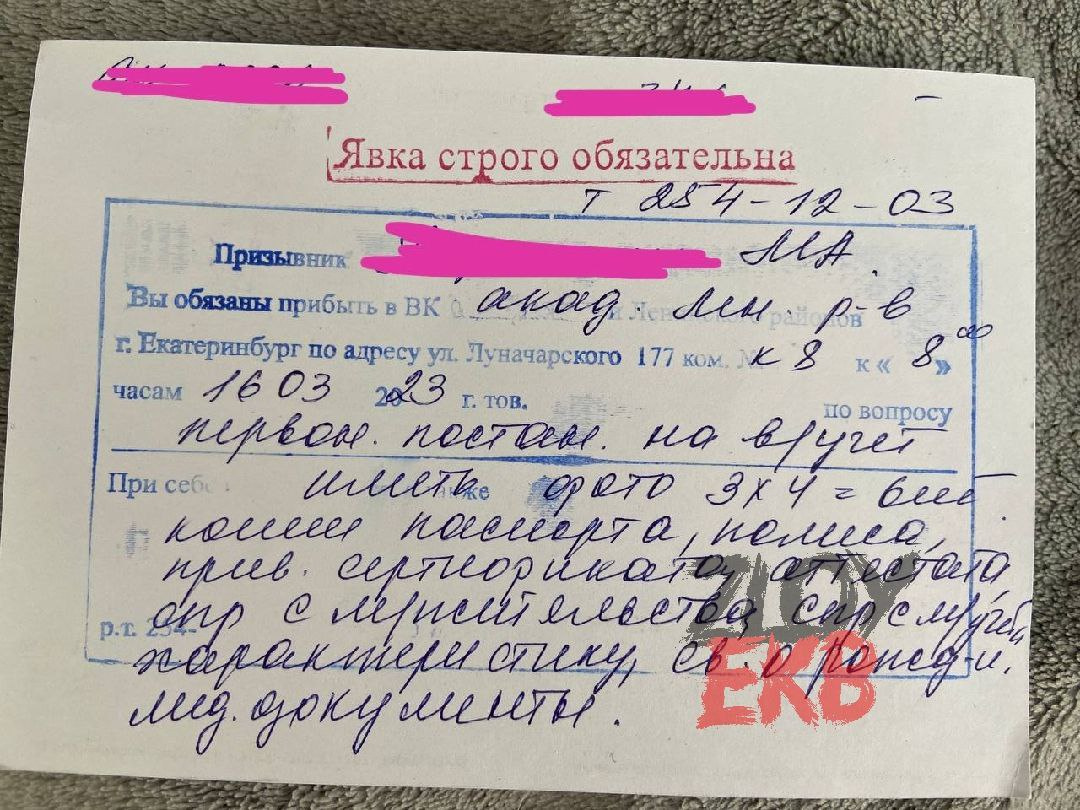 Явка строго обязательна
т 254-12-03
Призывник М.А.
Вы обязаны прибыть в ВК акад. Лен. р-в и районов
г. Екатеринбург по адресу ул. Луначарского 177 ком. № к 8 к « 8 00 »
часам 16 03 2023 г. тов. по вопросу
первон. постан. на в/учет
При себе иметь также фото 3х4 = 6шт.
копии паспорта, полиса,
прив. сертификата, аттестата,
спр с м/жительства, спр с м/учебы
р.т. 254-
характеристику, св. о рожд-и,
мед. документы.
ZLOY
EKB